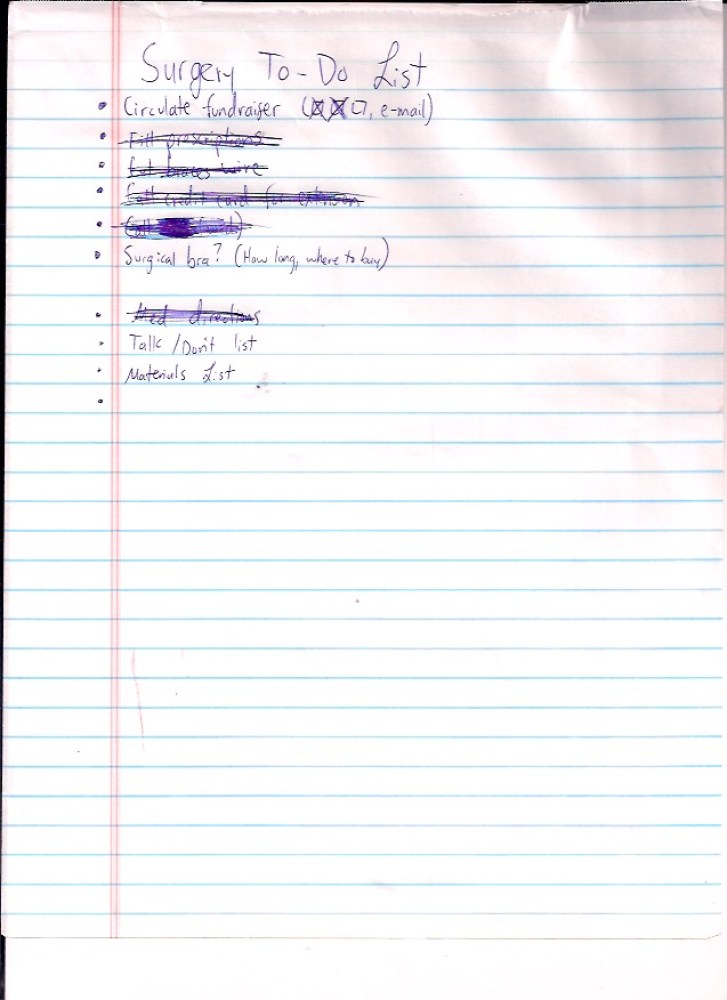 Surgery To-Do List
• Circulate fundraiser (☒ ☒ ☐, e-mail)
• Fill prescriptions
• Cut braces wire
• Call credit card for extension
• Call
• Surgical bra? (How long, where to buy)
• Med directions
• Talk/Don't list
• Materials List
•